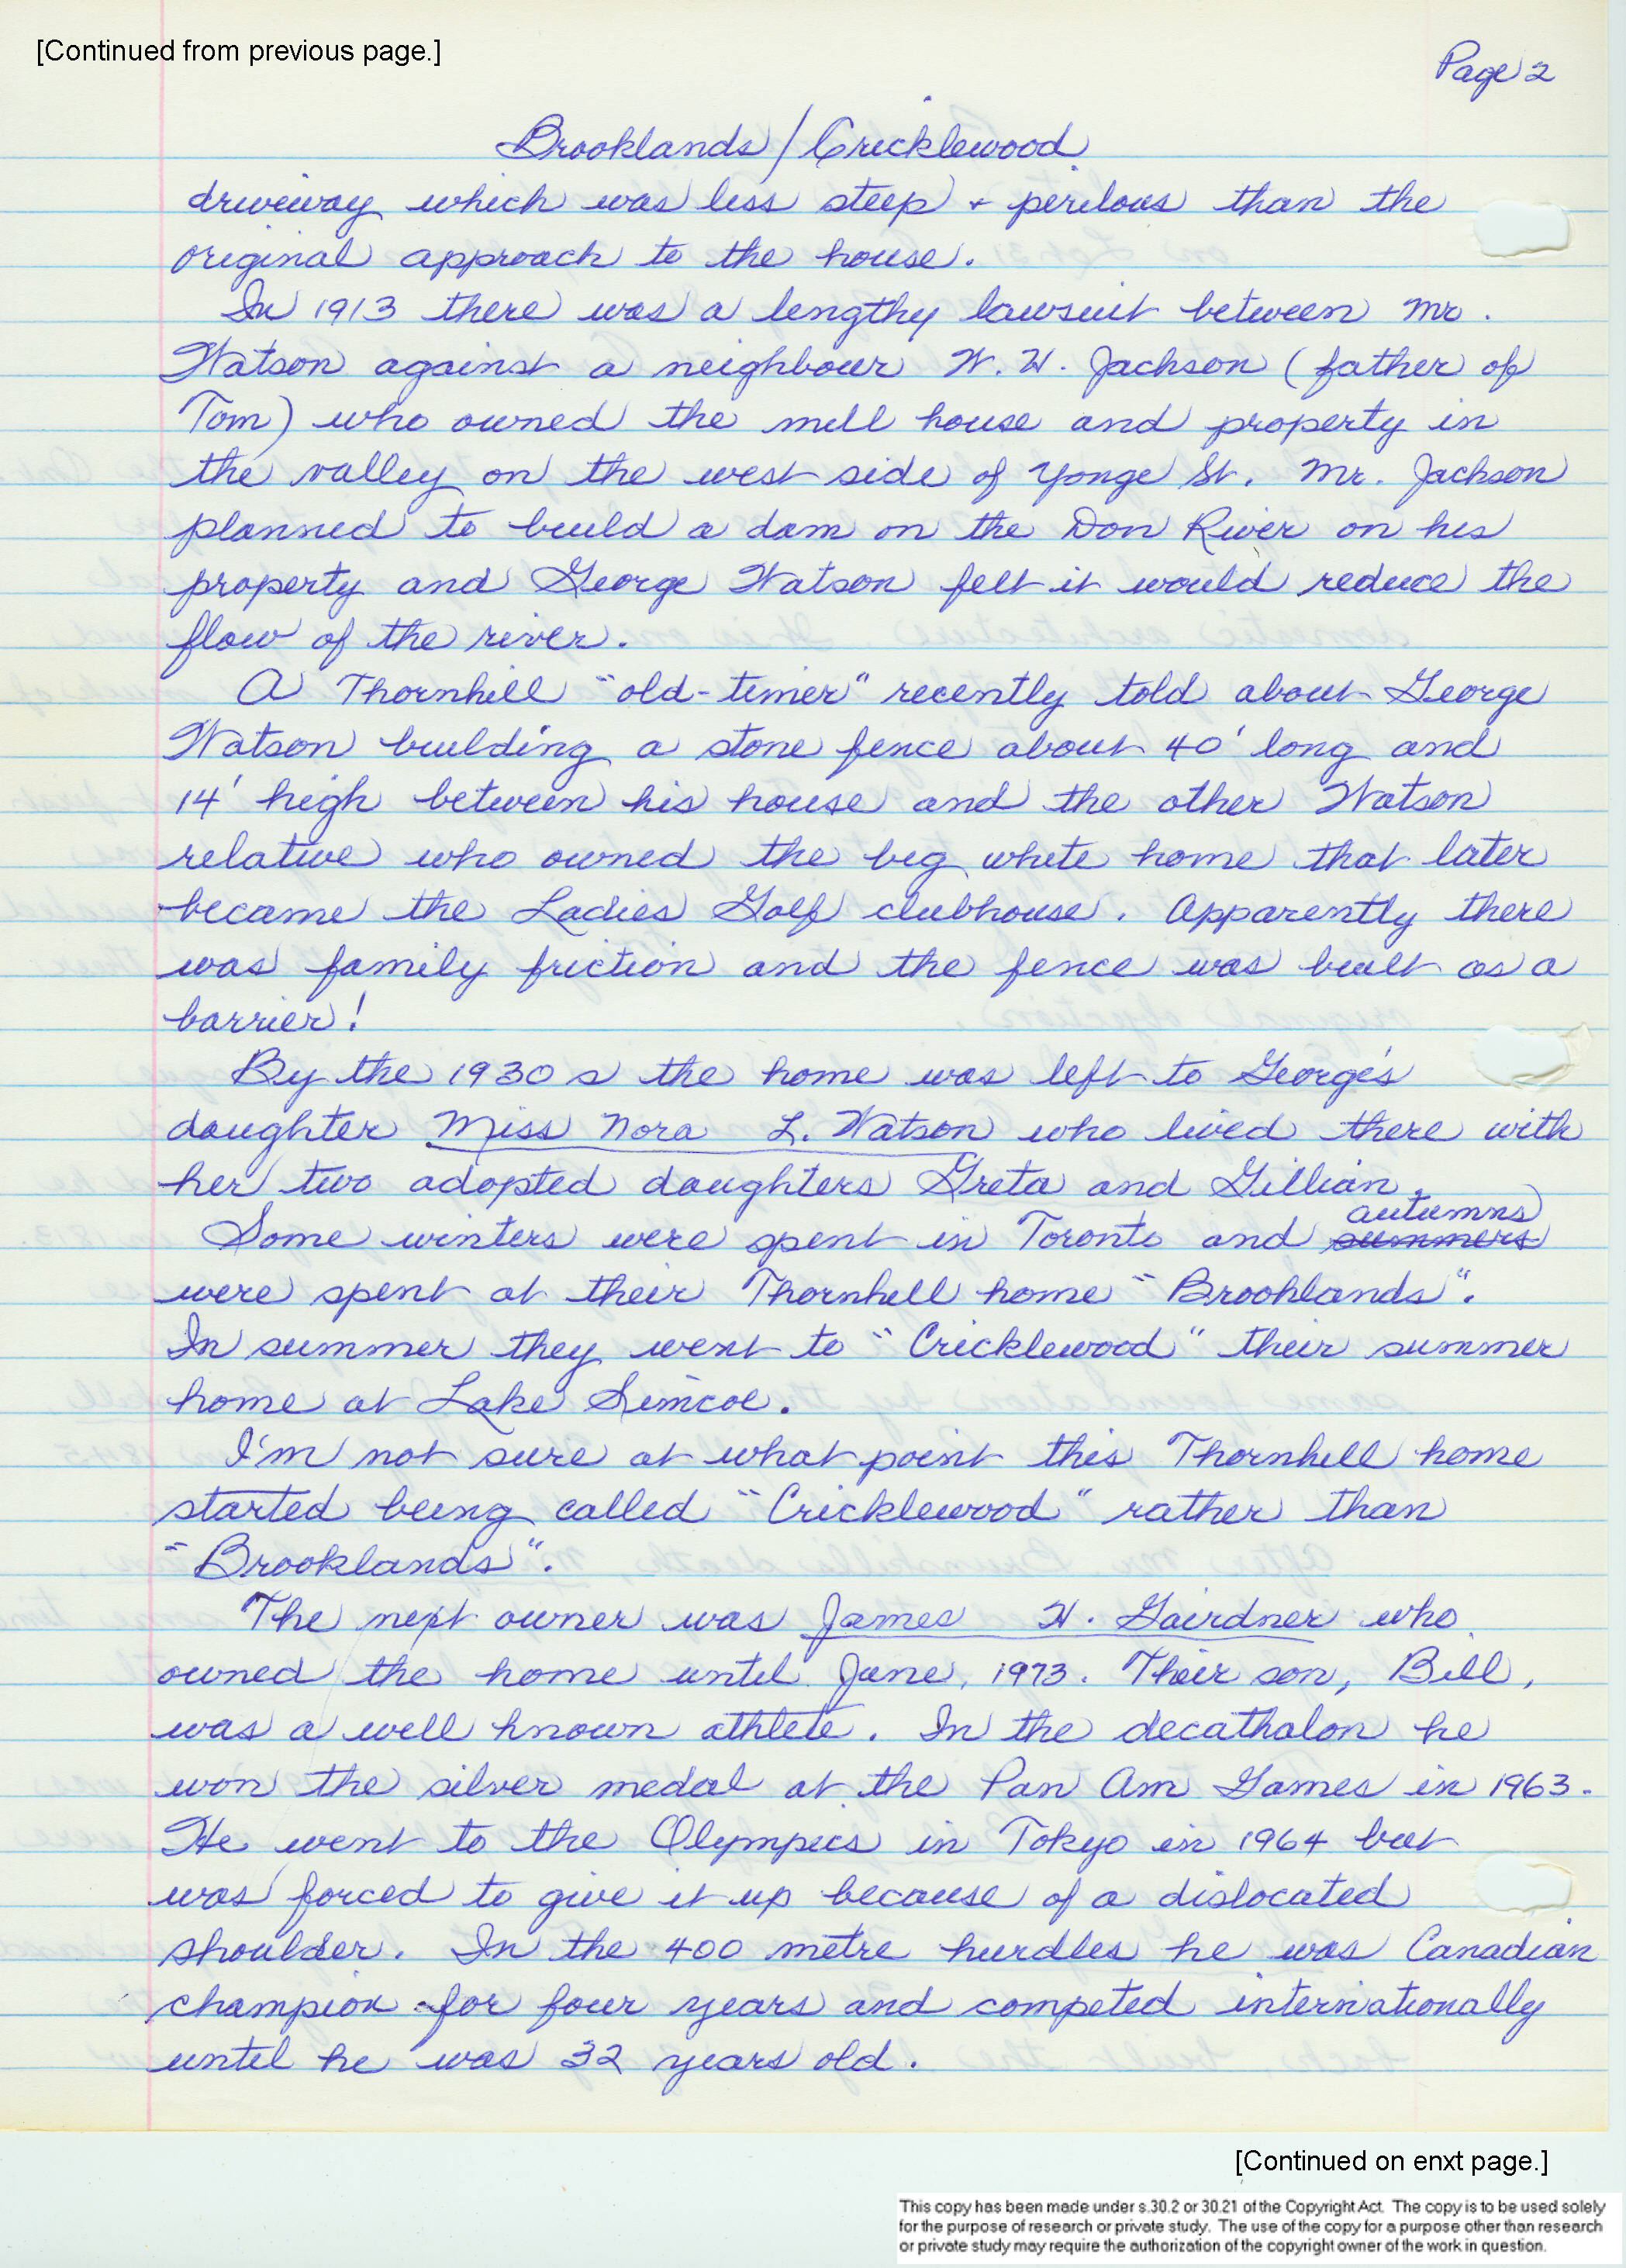 [Continued from previous page.]
Page 2
Brooklands / Cricklewood
driveway which was less steep + perilous than the
original approach to the house.
In 1913 there was a lengthy lawsuit between Mr.
Watson against a neighbour W. H. Jackson (father of
Tom) who owned the mill house and property in
the valley on the west side of Yonge St. Mr. Jackson
planned to build a dam on the Don River on his
property and George Watson felt it would reduce the
flow of the river.
A Thornhill "old-timer" recently told about George
Watson building a stone fence about 40' long and
14' high between his house and the other Watson
relative who owned the big white home that later
became the Ladies Golf clubhouse. Apparently there
was family friction and the fence was built as a
barrier!
By the 1930s the home was left to George's
daughter Miss Nora L. Watson who lived there with
her two adopted daughters Greta and Gillian.
autumns
Some winters were spent in Toronto and summers
were spent at their Thornhill home "Brooklands".
In summer they went to "Cricklewood" their summer
home at Lake Simcoe.
I'm not sure at what point this Thornhill home
started being called "Cricklewood" rather than
"Brooklands".
The next owner was James H. Gairdner who
owned the home until June, 1973. Their son, Bill,
was a well known athlete. In the decathalon he
won the silver medal at the Pan Am Games in 1963.
He went to the Olympics in Tokyo in 1964 but
was forced to give it up because of a dislocated
shoulder. In the 400 metre hurdles he was Canadian
champion for four years and competed internationally
until he was 32 years old.
[Continued on enxt page.]
This copy has been made under s.30.2 or 30.21 of the Copyright Act. The copy is to be used solely
for the purpose of research or private study. The use of the copy for a purpose other than research
or private study may require the authorization of the copyright owner of the work in question.